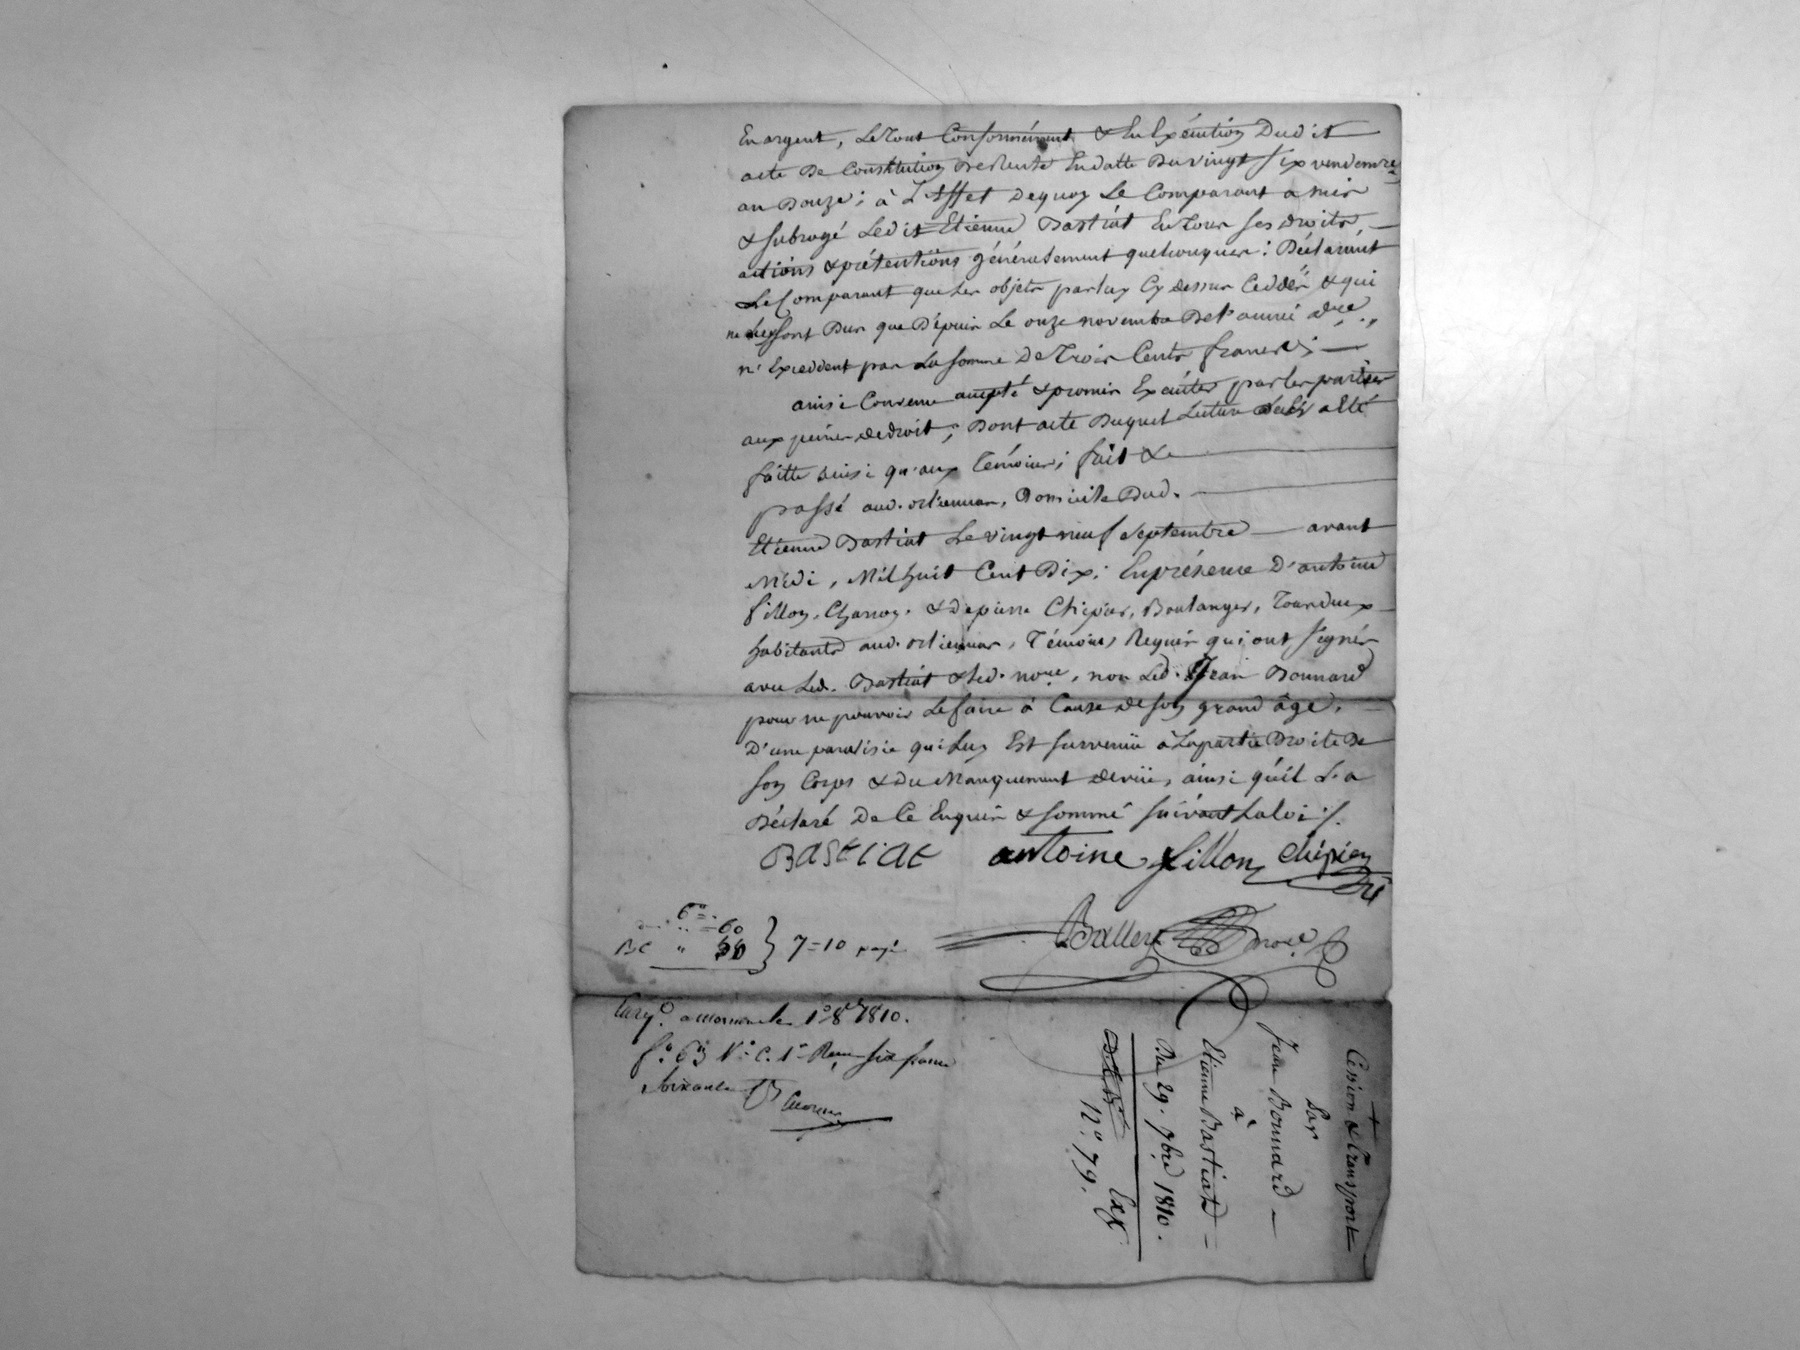 En argent, Le Tout Conformément & En Exécution Dudit
acte De Constitution De Rente En datte Du vingt six vendemre
an Douze; à L'Effet dequoy Le Comparant a mis
& subrogé Ledit Etienne Bastiat En Tous ses droits,
actions & prétentions généralement quelconques: Déclarant
Le Comparant que Les objets par luy Cy dessus Ceddés & qui
ne luy sont Dus que Depuis Le onze novembre De l'année dre.,
n'Exceddent pas La somme De Trois Cents francs;
ainsi Convenu accepté & promis Exécuter par les parties
aux peines de droit; Dont acte Duquel Lecture a été
faitte ainsi qu'aux Témoins; fait &
passé aud. , Domicile Dud.
Etienne Bastiat Le vingt neuf Septembre avant
Midi, Mil huit Cent Dix; En présence D'antoine
fillon, & De pierre Chipier, Boulanger, Tous deux
habitants aud. , Témoins Requis qui ont signés
avec Led. Bastiat & Led. nore, non Led. Jean Bonnard
pour ne pouvoir Le faire à Cause de son grand âge,
D'une paralisie qui Luy Est survenüe à La partie Droite De
son Corps & Du Manquement de vüe, ainsi qu'il L'a
Déclaré De Ce Enquis & sommé suivant La loi ./.
BAStiAt antoine fillon chipier
6 = "
" = 60
" 50 } 7 = 10 payé
nore
Enrgé. a le 1er 8bre 1810.
fo. 63 Vo. C. 1re Reçu six francs
soixante
Cession & Transport
Par
Jean Bonnard
à
Etienne Bastiat
Du 29. 7bre 1810.
No. 79. Exp.